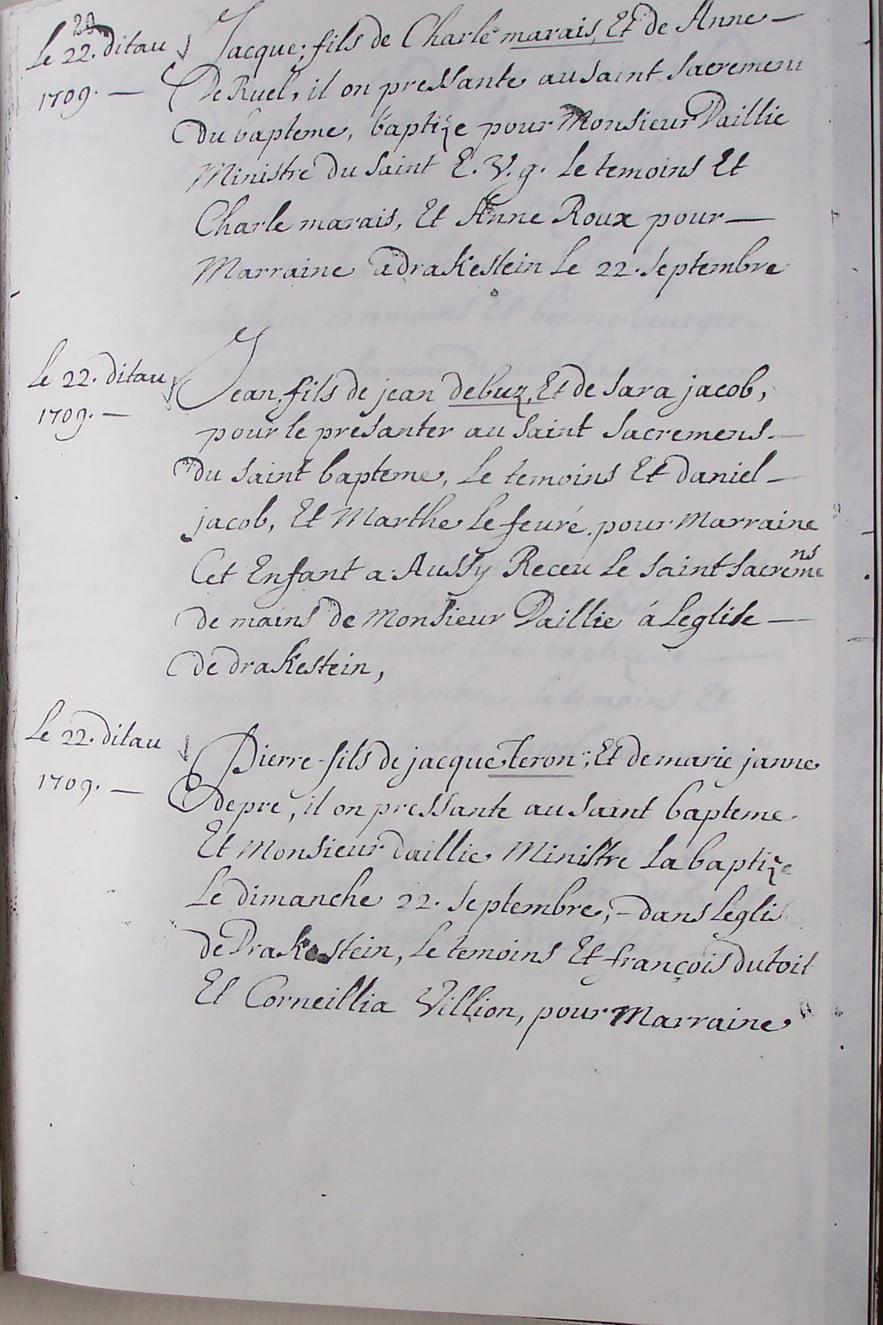 20
Le 22. ditau
1709. —
Jacque, fils de Charle marais, Et de Anne —
De Ruel, il on pressante au saint Sacrement
Du bapteme, baptize pour Monsieur Daillie
Ministre Du Saint E. V. g. Le temoins Et
Charle marais, Et Anne Roux pour —
Marraine a drakestein Le 22. Septembre
Le 22. ditau
1709. —
Jean, fils de jean debuz, Et de Sara jacob,
pour le presanter au Saint Sacremens. —
Du Saint bapteme, Le temoins Et daniel —
jacob, Et Marthe Le feuré. pour Marraine
Cet Enfant a Aussy Receu Le Saint Sacremens
de mains de Monsieur Daillie á Leglise —
De drakestein,
Le 22. ditau
1709. —
Pierre fils de jacque Teron, Et de marie janne
depre, il on pressante au Saint bapteme
Et Monsieur daillie Ministre La baptize
Le dimanche 22. Septembre, - dans Leglis
de Drakestein, Le temoins Et françois dutoit
Et Corneillia Villion, pour Marraine